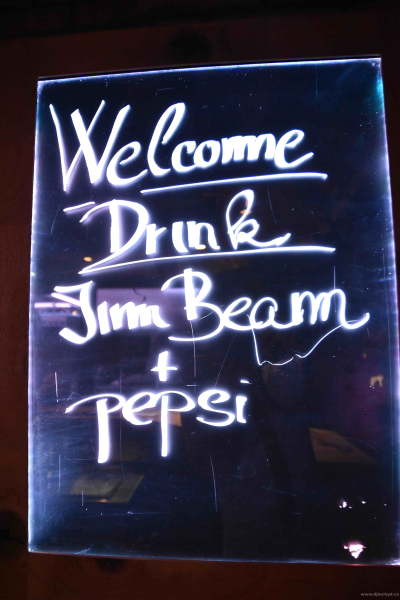 Welcome
Drink
Jim Beam
+
pepsi